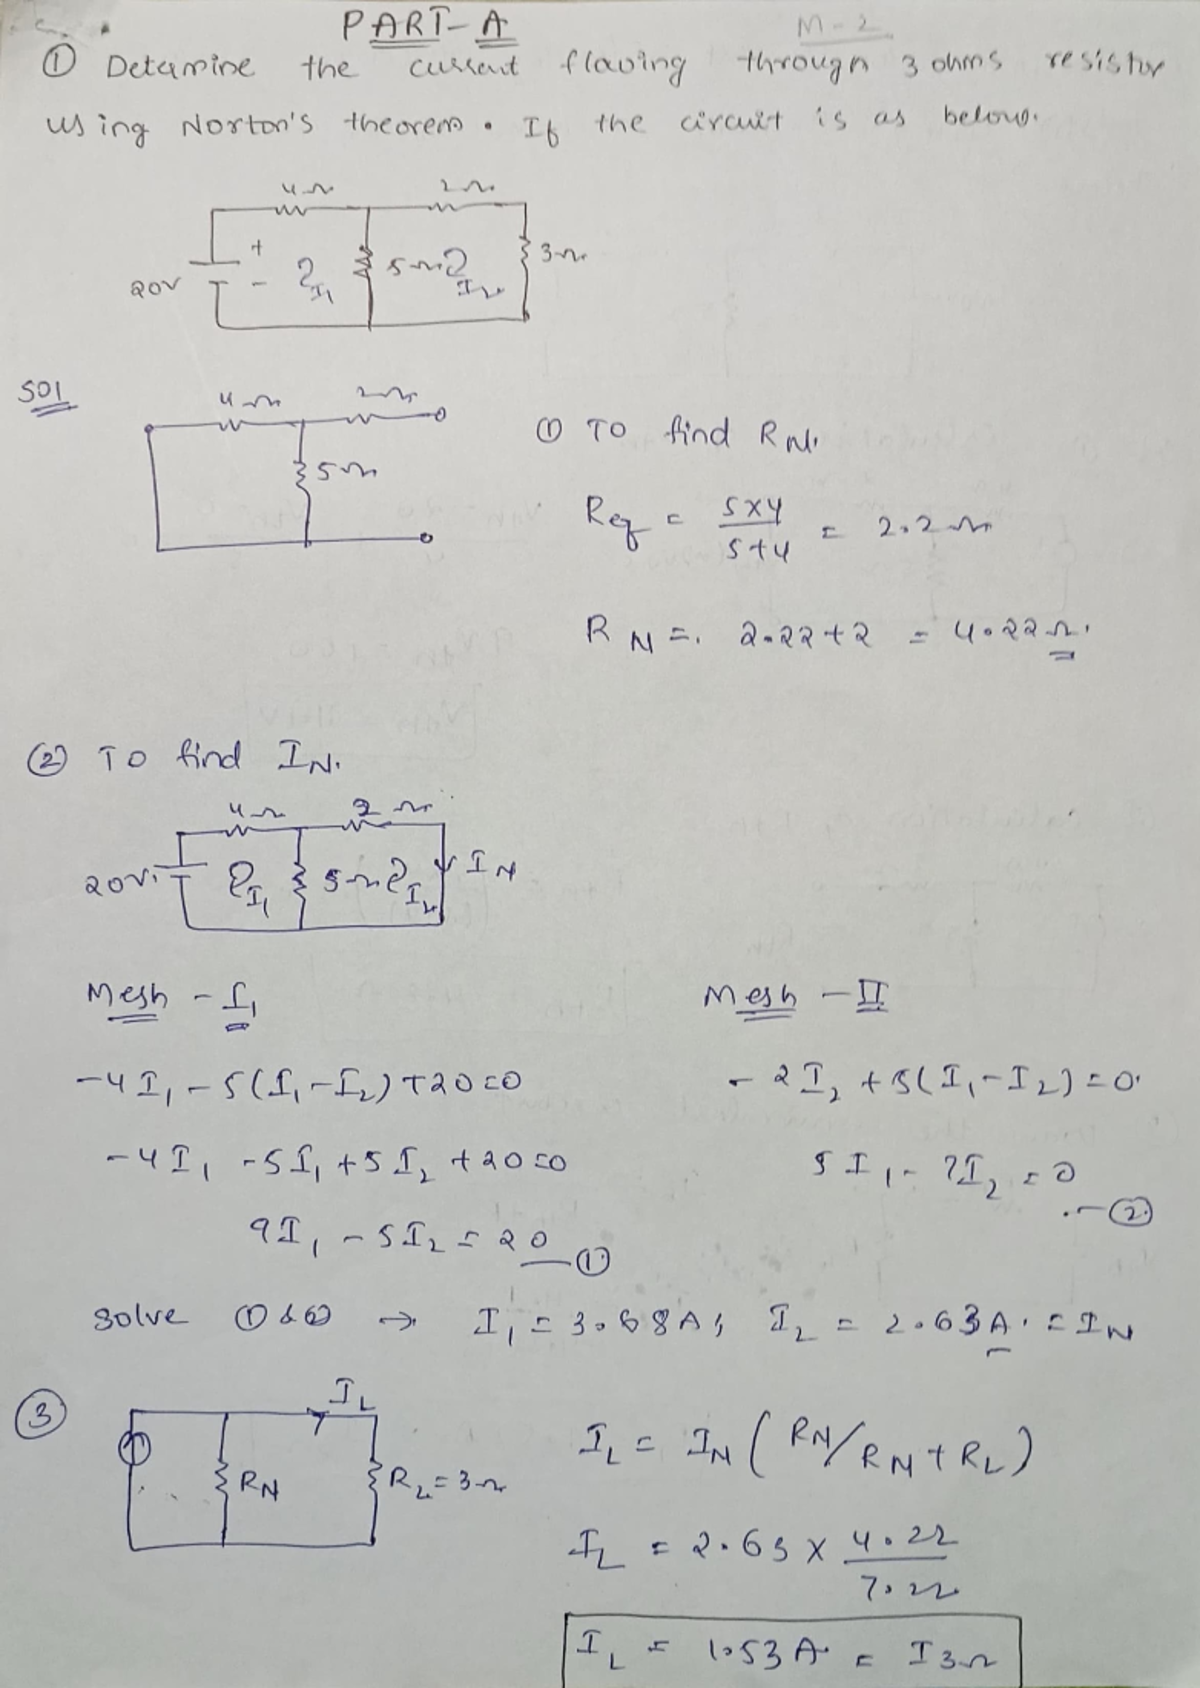 PART-A
M-2
① Determine the current flowing through 3 ohms resistor
using Norton's theorem. If the circuit is as below.
4Ω 2Ω
20V + - I₁ 5Ω I₂ 3Ω
Sol
4Ω 2Ω
5Ω
① TO find RN.
Req = 5×4/5+4 = 2.2Ω
RN =. 2.22+2 = 4.22Ω.
② TO find IN.
4Ω 2Ω
20V. I₁ 5Ω I₂ IN
Mesh - I₁
-4I₁ - 5(I₁-I₂)+20=0
-4I₁ -5I₁ +5I₂ +20=0
9I₁ - 5I₂ = 20 —①
Mesh - II
- 2I₂ +5(I₁-I₂)=0.
5I₁ - 7I₂ = 0
—②
Solve ①&② → I₁ = 3.68A; I₂ = 2.63A. = IN
③
IL
RN RL=3Ω
IL = IN (RN/RN+RL)
IL = 2.63 × 4.22/7.22
IL = 1.53A = I3Ω